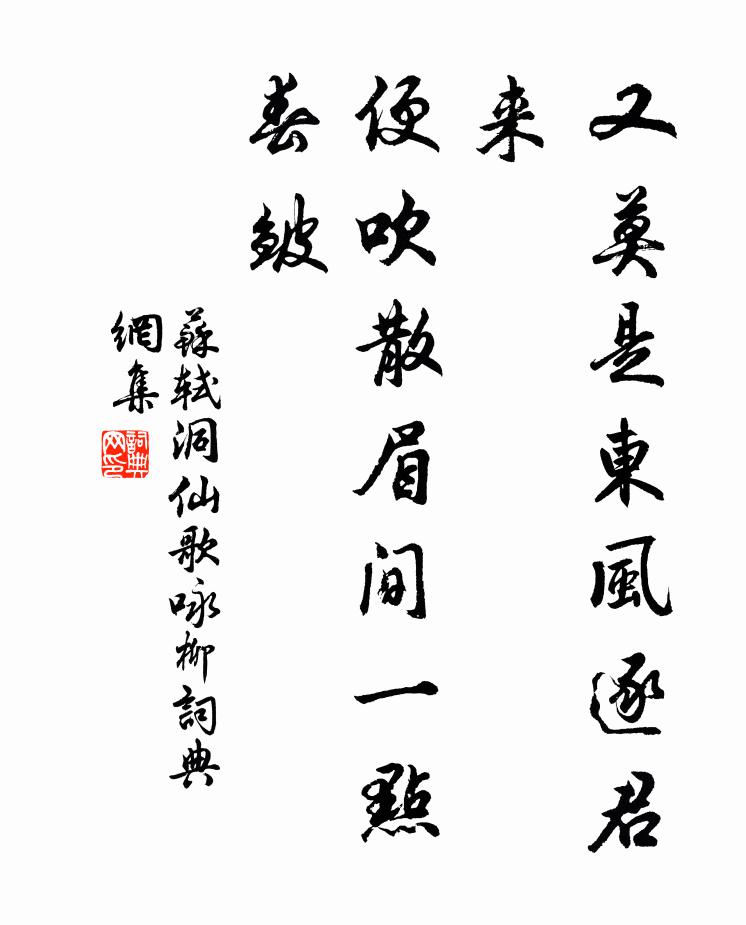 又莫是東風逐君
来
便吹散眉間一點
春皺
蘇軾洞仙歌咏柳詞典
網集
詞典网印